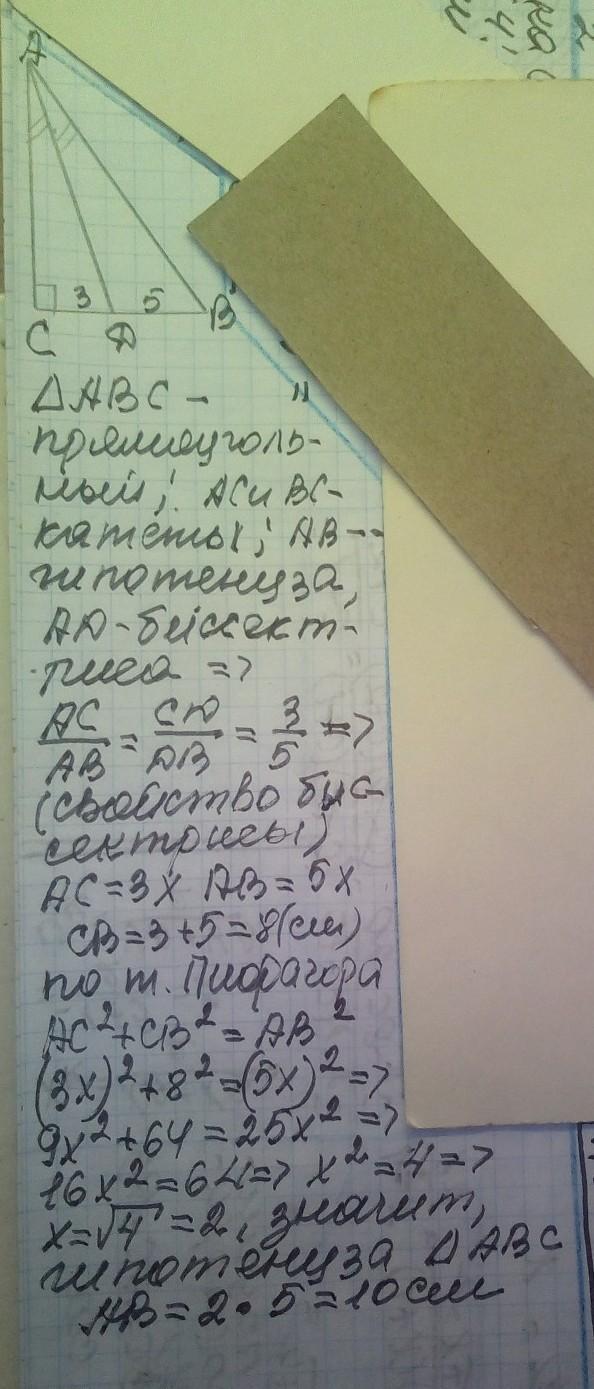 A
3 5
C D B
ΔABC –
прямоуголь-
ный; AC и BC-
катеты; AB--
гипотенуза,
AD-биссект-
риса =>
AC/AB = CD/DB = 3/5 =>
(свойство бис-
сектрисы)
AC=3x AB=5x
CB=3+5=8(см)
по т. Пифагора
AC²+CB²=AB²
(3x)²+8²=(5x)² =>
9x²+64=25x² =>
16x²=64=> x²=4=>
x=√4=2, значит,
гипотенуза ΔABC
AB=2·5=10см